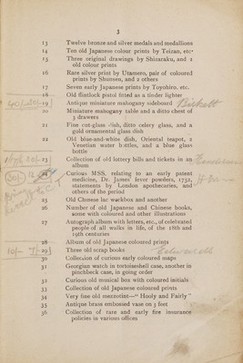 3
13 Twelve bronze and silver medals and medallions
14 Ten old Japanese colour prints by Teizan, etc.
15 Three original drawings by Shitaraku, and 2
old colour prints
16 Rare silver print by Utamaro, pair of coloured
prints by Shunsen, and 2 others
17 Seven early Japanese prints by Toyohiro, etc.
18 Old flintlock pistol fitted as a tinder lighter
19 Antique miniature mahogany sideboard
20 Miniature mahogany table and a ditto chest of
3 drawers
21 Fine cut-glass dish, ditto celery glass, and a
gold ornamental glass dish
22 Old blue-and-white dish, Oriental teapot, 2
Venetian water bottles, and a blue glass
bottle
23 Collection of old lottery bills and tickets in an
album
24 Curious MSS. relating to an early patent
medicine, Dr. James fever powders, 1752,
statements by London apothecaries, and
others of the period
25 Old Chinese lac workbox and another
26 Number of old Japanese and Chinese books,
some with coloured and other illustrations
27 Autograph album with letters, etc., of celebrated
people of all walks in life, of the 18th and
19th centuries
28 Album of old Japanese coloured prints
29 Three old scrap books
30 Collection of curious early coloured maps
31 Georgian watch in tortoiseshell case, another in
pinchbeck case, in going order
32 Curious old musical box with coloured initials
33 Collection of old Japanese coloured prints
34 Very fine old mezzotint—"Hooly and Fairly"
35 Antique brass embossed vase on 3 feet
36 Collection of rare and early fire insurance
policies in various offices